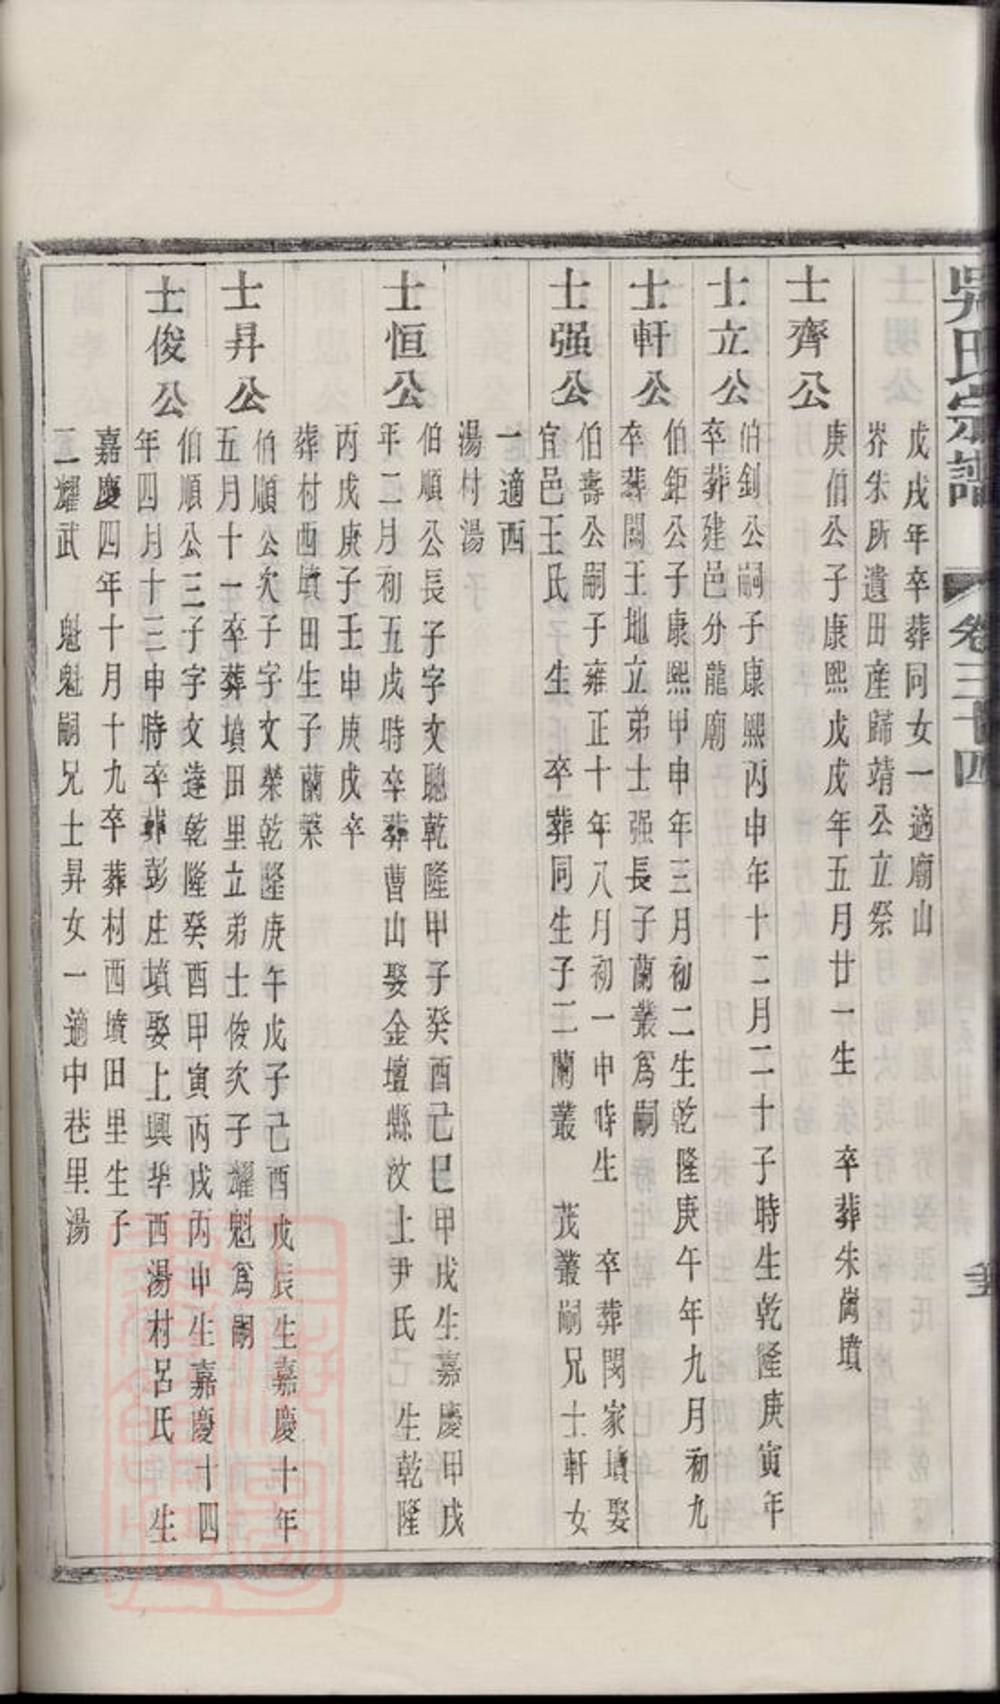 吳氏宗譜 卷三十四
戊戌年卒葬同女一適廟山
岕朱所遺田產歸靖公立祭
士齊公
庚伯公子康熙戊戌年五月廿一生 卒葬朱崗墳
士立公
伯釗公嗣子康熙丙申年十二月二十子時生乾隆庚寅年
卒葬建邑分龍廟
士軒公
伯鉅公子康熙甲申年三月初二生乾隆庚午年九月初九
卒葬閻王地立弟士强長子蘭叢爲嗣
士强公
伯壽公嗣子雍正十年八月初一申時生 卒葬閔家墳娶
宜邑王氏 生 卒葬同生子二蘭叢 茂叢嗣兄士軒女
一適西
湯村湯
士恒公
伯順公長子字文聰乾隆甲子癸酉己巳甲戌生嘉慶甲戌
年二月初五戌時卒葬曹山娶金壇縣汶上尹氏 生乾隆
丙戌庚子壬申庚戌卒
葬村西墳田生子蘭榮
士昇公
伯順公次子字文榮乾隆庚午戊子己酉戊辰生嘉慶十年
五月十一卒葬墳田里立弟士俊次子耀魁爲嗣
士俊公
伯順公三子字文達乾隆癸酉甲寅丙戌丙申生嘉慶十四
年四月十三申時卒葬彭庄墳娶上興埠西湯村呂氏 生
嘉慶四年十月十九卒葬村西墳田里生子
二耀武 魁魁嗣兄士昇女一適中巷里湯